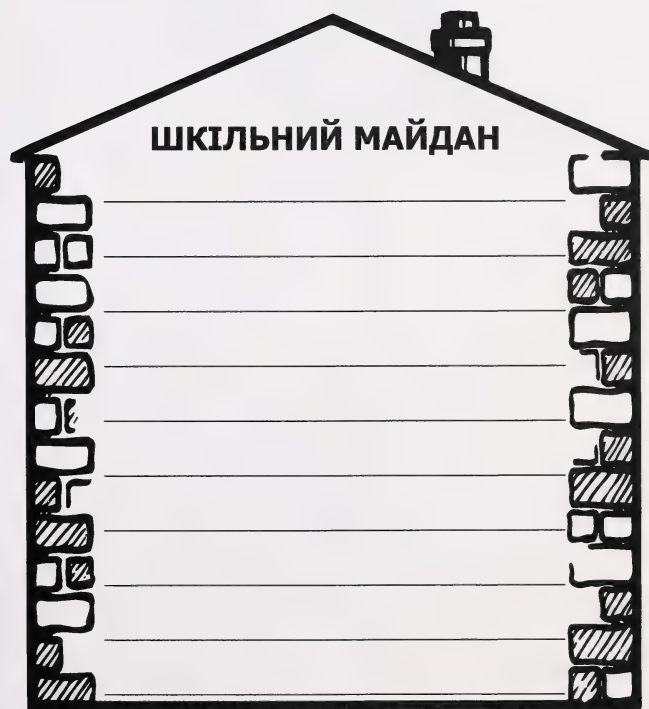 ШКІЛЬНИЙ МАЙДАН